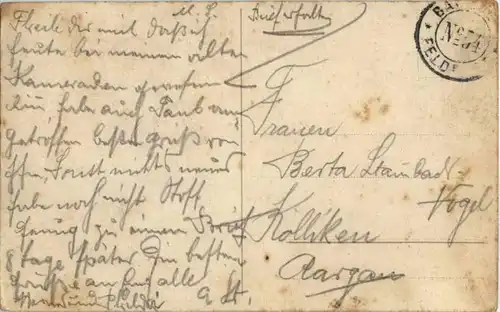 M. L.
Theile dir mit daß ich
heute bei meinem alten
Kameraden gewesen
bin, habe auch Paul an
getroffen besten gruß von
ihm, Sonst nichts neues
habe noch nicht Stoff
genug zu einem Brief
8 tage später Ein besten
grüße an Eng alle
und
Brief erhalten
Frauen
Berta
Vogel
Kölliken
Aargau
No 54
FELDP